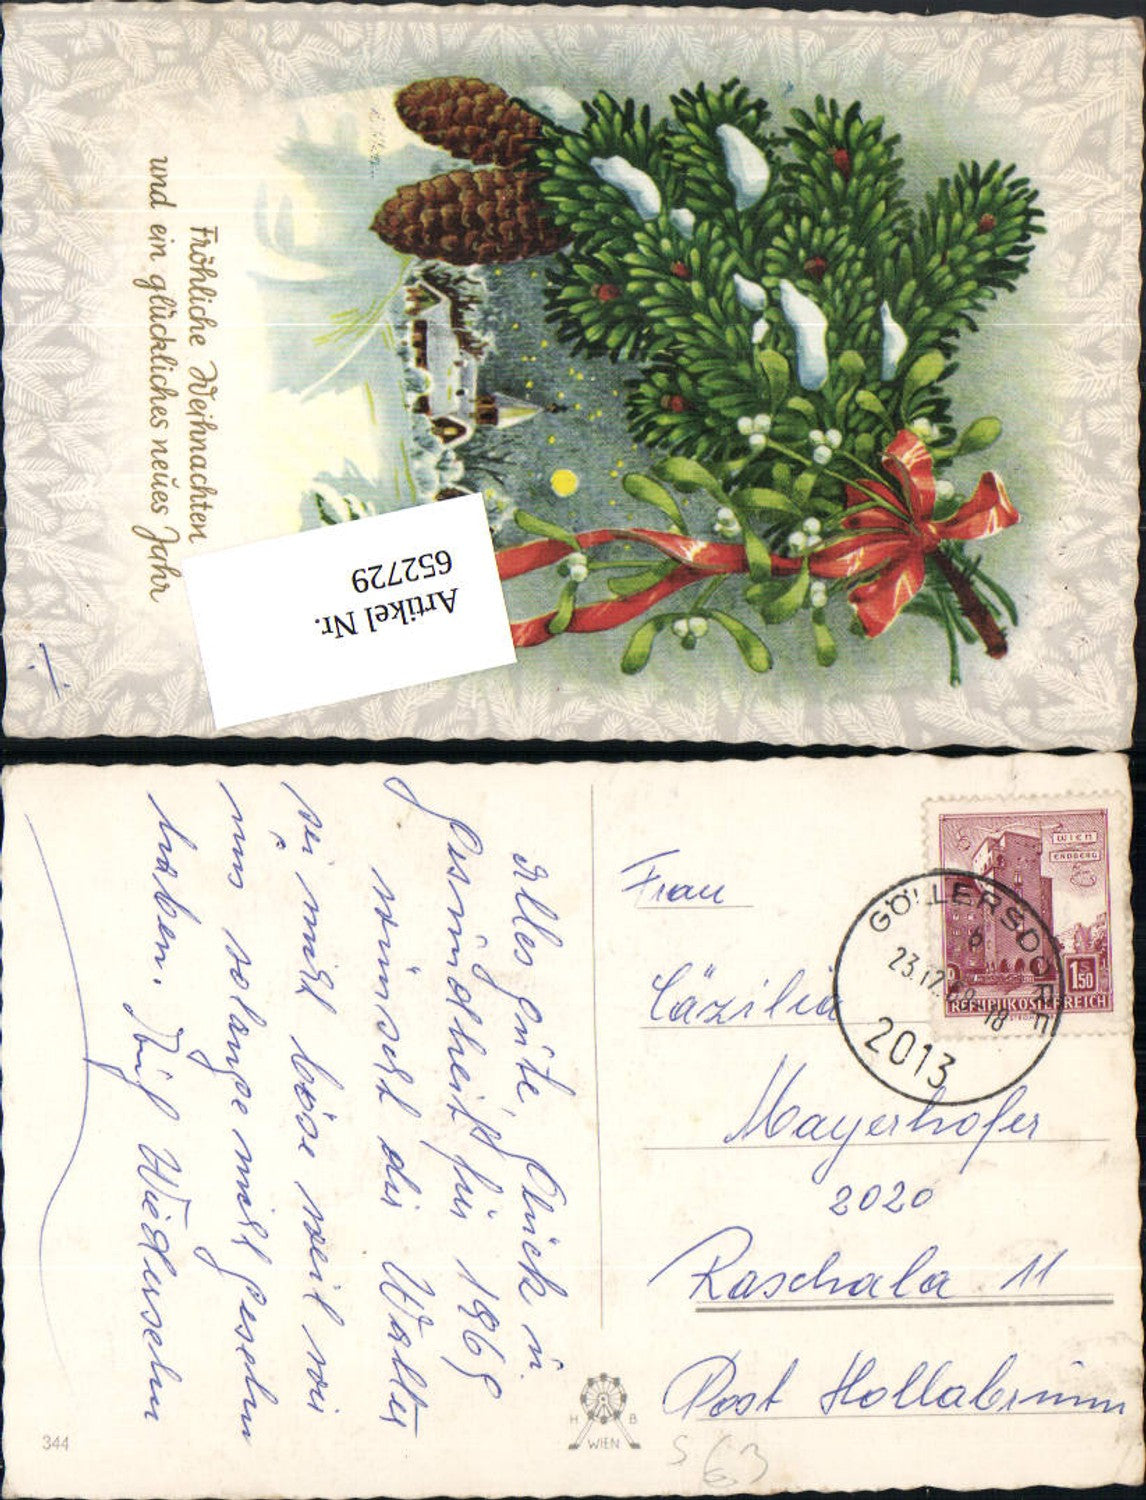 Fröhliche Weihnachten
und ein glückliches neues Jahr
Artikel Nr.
652729
Alles gute, Glück u.
Gesundheit für 1969
wünscht dir Walter
sei nicht böse weil wir
uns solange nicht gesehn
haben. Auf Wiedersehn
344
H B
WIEN
WIEN
ERDBERG
1.50
REPUBLIK ÖSTERREICH
GÖLLERSDORF
23.12.68-18
2013
Frau
Cäzilia
Mayerhofer
2020
Raschala 11
Post Hollabrunn
S 63